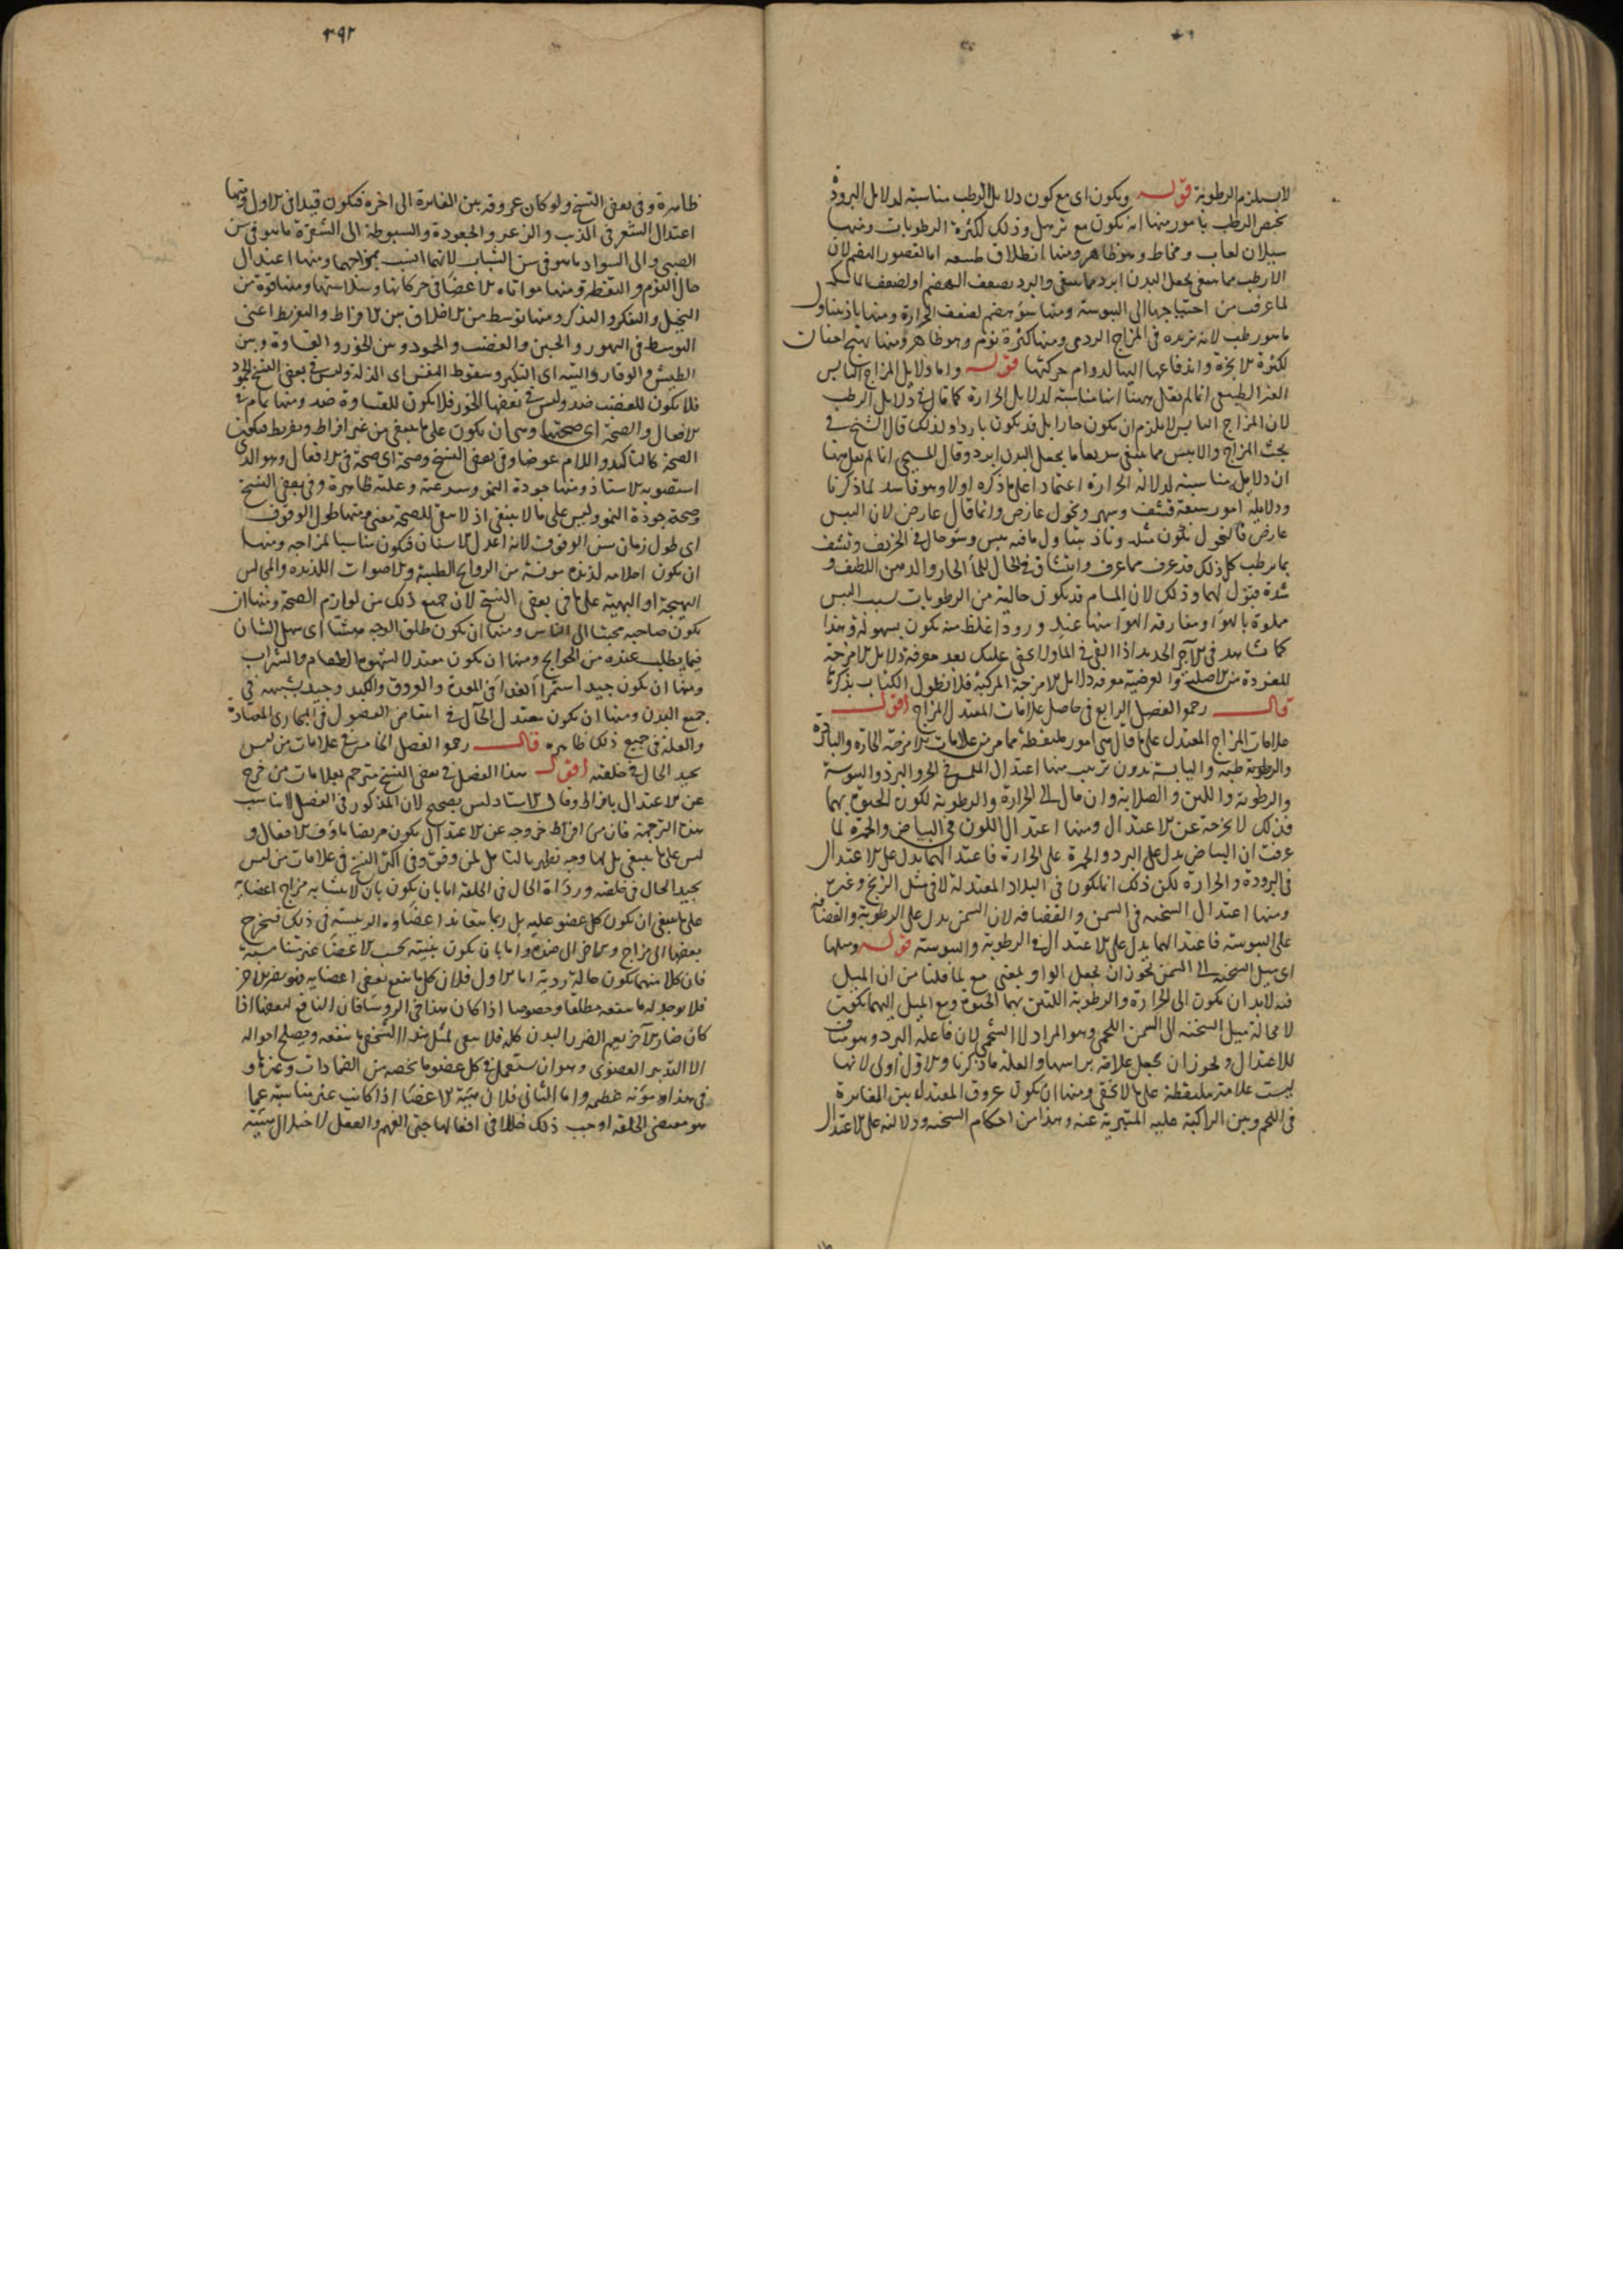 لاستلزام الرطوبة قوله ويكون اى مع كون دلايل الرطب مناسبة لدلايل البرودة
يختص الرطب بامور منها انه يكون مع ترهل وذلك لكثرة الرطوبات ومنها
سيلان لعاب ومخاط وهو ظاهر ومنها انطلاق طبيعة اما لقصور الهضم لان
الارطب مما ينبغى يجعل البدن ابرد مما ينبغى والبرد يضعف الهضم او لضعف الماسكة
لما عرفت من احتياجها الى اليبوسة ومنها سؤ هضم لضعف الحرارة ومنها تاذ بتناول
ما هو رطب لانه يزيده فى المزاج الردى ومنها كثرة نوم وهو ظاهر ومنها تهيج اجفان
لكثرة الابخرة واندفاعها اليها لدوام حركتها قوله واما دلايل المزاج اليابس
الغير الطبيعى انما لم يقل ههنا انها مناسبة لدلايل الحرارة كما قال فى دلايل الرطب
لان المزاج اليابس لا يلزم ان يكون حارا بل قد يكون باردا ولذلك قال الشيخ فى
بحث المزاج والايبس مما ينبغى سريعا ما يجعل البدن ابرد وقال المسيحى انما لم يقل هنا
ان دلايله مناسبة لدلالة الحرارة اعتمادا على ما ذكره اولا وهو فاسد لما ذكرنا
ودلايله امور سبعة قشف وسهر ونحول عارض وانما قال عارض لان اليبس
عارض فالنحول يكون مثله وتاذ بتناول ما فيه يبس وسؤ حال فى الخريف وتشف
بما يرطب كل ذلك قد عرف مما عرف وانتشاق فى الحال للماء الحار والدهن اللطيف و
شدة قبول لهما وذلك لان المسام قد يكون خالية من الرطوبات بسبب اليبس
مملوة بالهواء ومفارقة الهواء منها عند ورود اغلظ منه يكون بسهولة وهذا
كما نشاهد فى الاجر الجديد اذا القى فى الماء ولا يخفى عليك بعد معرفة دلايل الامزجة
المفردة من الاصلية والعرضية معرفة دلايل الامزجة المركبة فلا نطول الكتاب بذكرها
قال رحمه الفصل الرابع فى حاصل علامات المعتدل المزاج اقول
علامات المزاج المعتدل على ما قال هى امور ملتقطة مما مر من علامات الامزجة الحارة والباردة
والرطبة واليابسة بدون ترتيب منها اعتدال الملمس فى الحر والبرد واليبوسة
والرطوبة واللين والصلابة وان مال الى الحرارة والرطوبة لكون الحيوة بهما
فذلك لا يخرجه عن الاعتدال ومنها اعتدال اللون فى البياض والحمرة لما
عرفت ان البياض يدل على البرد والحمرة على الحرارة فاعتدالهما يدل على الاعتدال
فى البرودة والحرارة لكن ذلك انما يكون فى البلاد المعتدلة لا فى مثل الزنج وغيره
ومنها اعتدال السحنة فى السمن والقضافة لان السمن يدل على الرطوبة والقضافة
على اليبوسة فاعتدالهما يدل على الاعتدال فى الرطوبة واليبوسة قوله وميلها
اى ميل السحنة الى السمن يجوز ان يجعل الواو بمعنى مع لما قلنا من ان الميل
فيه لابد ان يكون الى الحرارة والرطوبة اللتين بهما الحيوة ومع الميل اليهما يكون
لا محالة ميل السحنة الى السمن اللحمى وهو المراد لا الشحمى لان فاعله البرد وهو مناف
للاعتدال ويجوز ان يجعل علامة براسها والعلة ما ذكرنا والاول اولى لانها
ليست علامة ملتقطة على ما لا يخفى ومنها ان يكون عروق المعتدل بين الغايرة
فى اللحم وبين الراكبة عليه المتبرية عنه وهذا من احكام السحنة ودلالته على الاعتدال
٣٩٢
ظاهرة وفى بعض النسخ ولو كان عروقه بين الغايرة الى اخره فيكون قيدا فى الاول ومنها
اعتدال الشعر فى الزبب والزعر والجعودة والسبوطة الى الشقرة ما هو فى سن
الصبى والى السواد ما هو فى سن الشباب لانهما انسب بمزاجهما ومنها اعتدال
حال النوم واليقظة ومنها مواتاة الاعضاء فى حركاتها وسلاستها ومنها قوة من
التخيل والتفكر والتذكر ومنها توسط من الاخلاق بين الافراط والتفريط اعنى
التوسط فى التهور والجبن والغضب والخمود ومن الخور والقساوة وبين
الطيش والوقار والتيه اى التكبر وسقوط النفس اى الذلة وليس فى بعض النسخ الخمود
فلا يكون للغضب ضد وليس فى بعضها الخور فلا يكون للقساوة ضد ومنها تمام فى
الافعال والصحة اى صحتها وهى ان يكون على ما ينبغى من غير افراط وتفريط فيكون
الصحة كالتاكيد واللام عوضا وفى بعض النسخ وصحة اى صحة فى الافعال وهو الذى
استصوبه الاستاذ ومنها جودة النمو وسرعته وعلته ظاهرة وفى بعض النسخ
وصحة جودة النمو وليس على ما لا ينبغى اذ لا يبقى للصحة معنى ومنها طول الوقوف
اى طول زمان سن الوقوف لانه اعدل الاسنان فيكون مناسبا لمزاجه ومنها
ان يكون احلامه لذيذة مونسة من الروايح الطيبة والاصوات اللذيذة والمجالس
البهيجة او البهية على ما فى بعض النسخ لان جميع ذلك من لوازم الصحة ومنها ان
يكون صاحبه محببا الى الناس ومنها ان يكون طلق الوجه هشا اى سهل الشان
فيما يطلب عنده من الحوايج ومنها ان يكون معتدلا لشهوة الطعام والشراب
ومنها ان يكون جيد استمراء الغذاء فى المعدة والعروق والكبد وجيد تشبيهه فى
جميع البدن ومنها ان يكون معتدل الحال فى انتفاض الفضول فى المجارى المعتادة
والعلة فى جميع ذلك ظاهرة قال رحمه الفصل الخامس فى علامات من ليس
بجيد الحال فى خلقته اقول هذا الفصل فى بعض النسخ مترجم بعلامات من خرج
عن الاعتدال بافراط وقال الاستاد ليس بصحيح لان المذكور فى الفصل لا يناسب
هذه الترجمة فان من افراط خروجه عن الاعتدال يكون مريضا ماؤف الافعال و
ليس على ما ينبغى بل لها وجه يظهر بالتامل لمن وقف وفى اكثر النسخ فى علامات من ليس
بجيد الحال فى خلقته ورداءة الحال فى الخلقة اما بان يكون بان لا يتشابه مزاج اعضايه
على ما ينبغى ان يكون كل عضو عليه بل ربما تعاند اعضاؤه الرييسة فى ذلك فيخرج
بعضها الى مزاج وبعض الى ضده واما بان يكون بنيته بحسب الاعضاء غير متناسبة
فان كلا منهما يكون حالة ردية اما الاول فلان كل ما ينفع بعض اعضايه فهو يضر الاخر
فلا يوجد له ما ينفعه مطلقا وخصوصا اذا كان هذا فى الروساء فان النافع لبعضها اذا
كان ضارا لاخر يعم الضرر البدن كله فلا يبقى لمثل هذا الشخص ما ينفعه ويصلح احواله
الا التدبير العضوى وهو ان يستعمل فى كل عضو ما يخصه من الضمادات وغيرها و
فى هذا مؤنة عظيمة واما الثانى فلان هيئة الاعضاء اذا كانت غير متناسبة عما
هو مقتضى الخلقة اوجب ذلك خللا فى افعالها حتى الفهم والعقل لاختلال هيئة